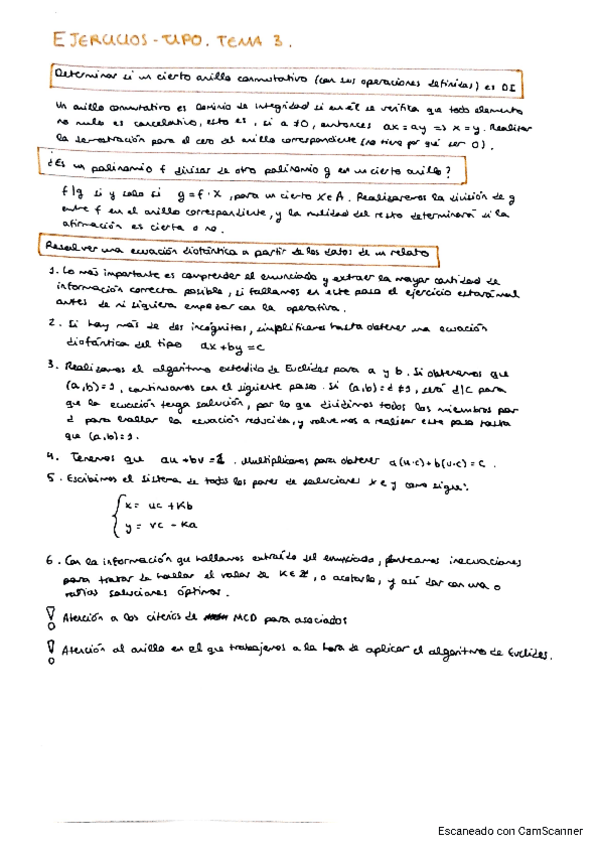 EJERCICIOS-TIPO. TEMA 3.
Determinar si un cierto anillo conmutativo (con sus operaciones definidas) es DI
Un anillo conmutativo es Dominio de integridad si en él se verifica que todo elemento
no nulo es cancelativo, esto es, si a ≠0, entonces ax=ay => x=y. Realizar
la demostración para el cero del anillo correspondiente (no tiene por qué ser 0).
¿Es un polinomio f divisor de otro polinomio g en un cierto anillo?
f|g si y solo si g=f·x, para un cierto x∈A. Realizaremos la división de g
entre f en el anillo correspondiente, y la nulidad del resto determinará si la
afirmación es cierta o no.
Resolver una ecuación diofántica a partir de los datos de un relato
1. Lo más importante es comprender el enunciado y extraer la mayor cantidad de
información correcta posible, si fallamos en este paso el ejercicio estará mal
antes de ni siquiera empezar con la operativa.
2. Si hay más de dos incógnitas, simplificamos hasta obtener una ecuación
diofántica del tipo ax+by=c
3. Realizamos el algoritmo extendido de Euclides para a y b. Si obtenemos que
(a,b)=1, continuamos con el siguiente paso. Si (a,b)=d≠1, será d|c para
que la ecuación tenga solución, por lo que dividimos todos los miembros por
d para hallar la ecuación reducida, y volvemos a realizar este paso hasta
que (a,b)=1.
4. Tenemos que au+bv=1. Multiplicamos para obtener a(u·c)+b(v·c)=c.
5. Escribimos el sistema de todos los pares de soluciones x e y como sigue:
x= uc +Kb
y= vc -Ka
6. Con la información que hallamos extraído del enunciado, planteamos inecuaciones
para tratar de hallar el valor de K∈Z, o acotarlo, y así dar con una o
varias soluciones óptimas.
! Atención a los citerios de MCD para asociados
! Atención al anillo en el que trabajemos a la hora de aplicar el algoritmo de Euclides.
Escaneado con CamScanner